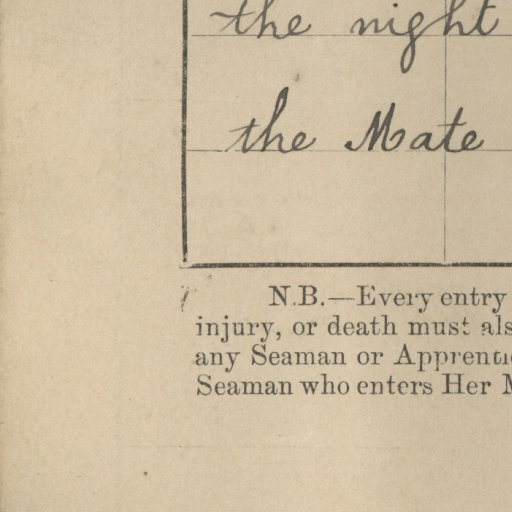 the night
the Mate
N.B.—Every entry
injury, or death must als
any Seaman or Apprentic
Seaman who enters Her M